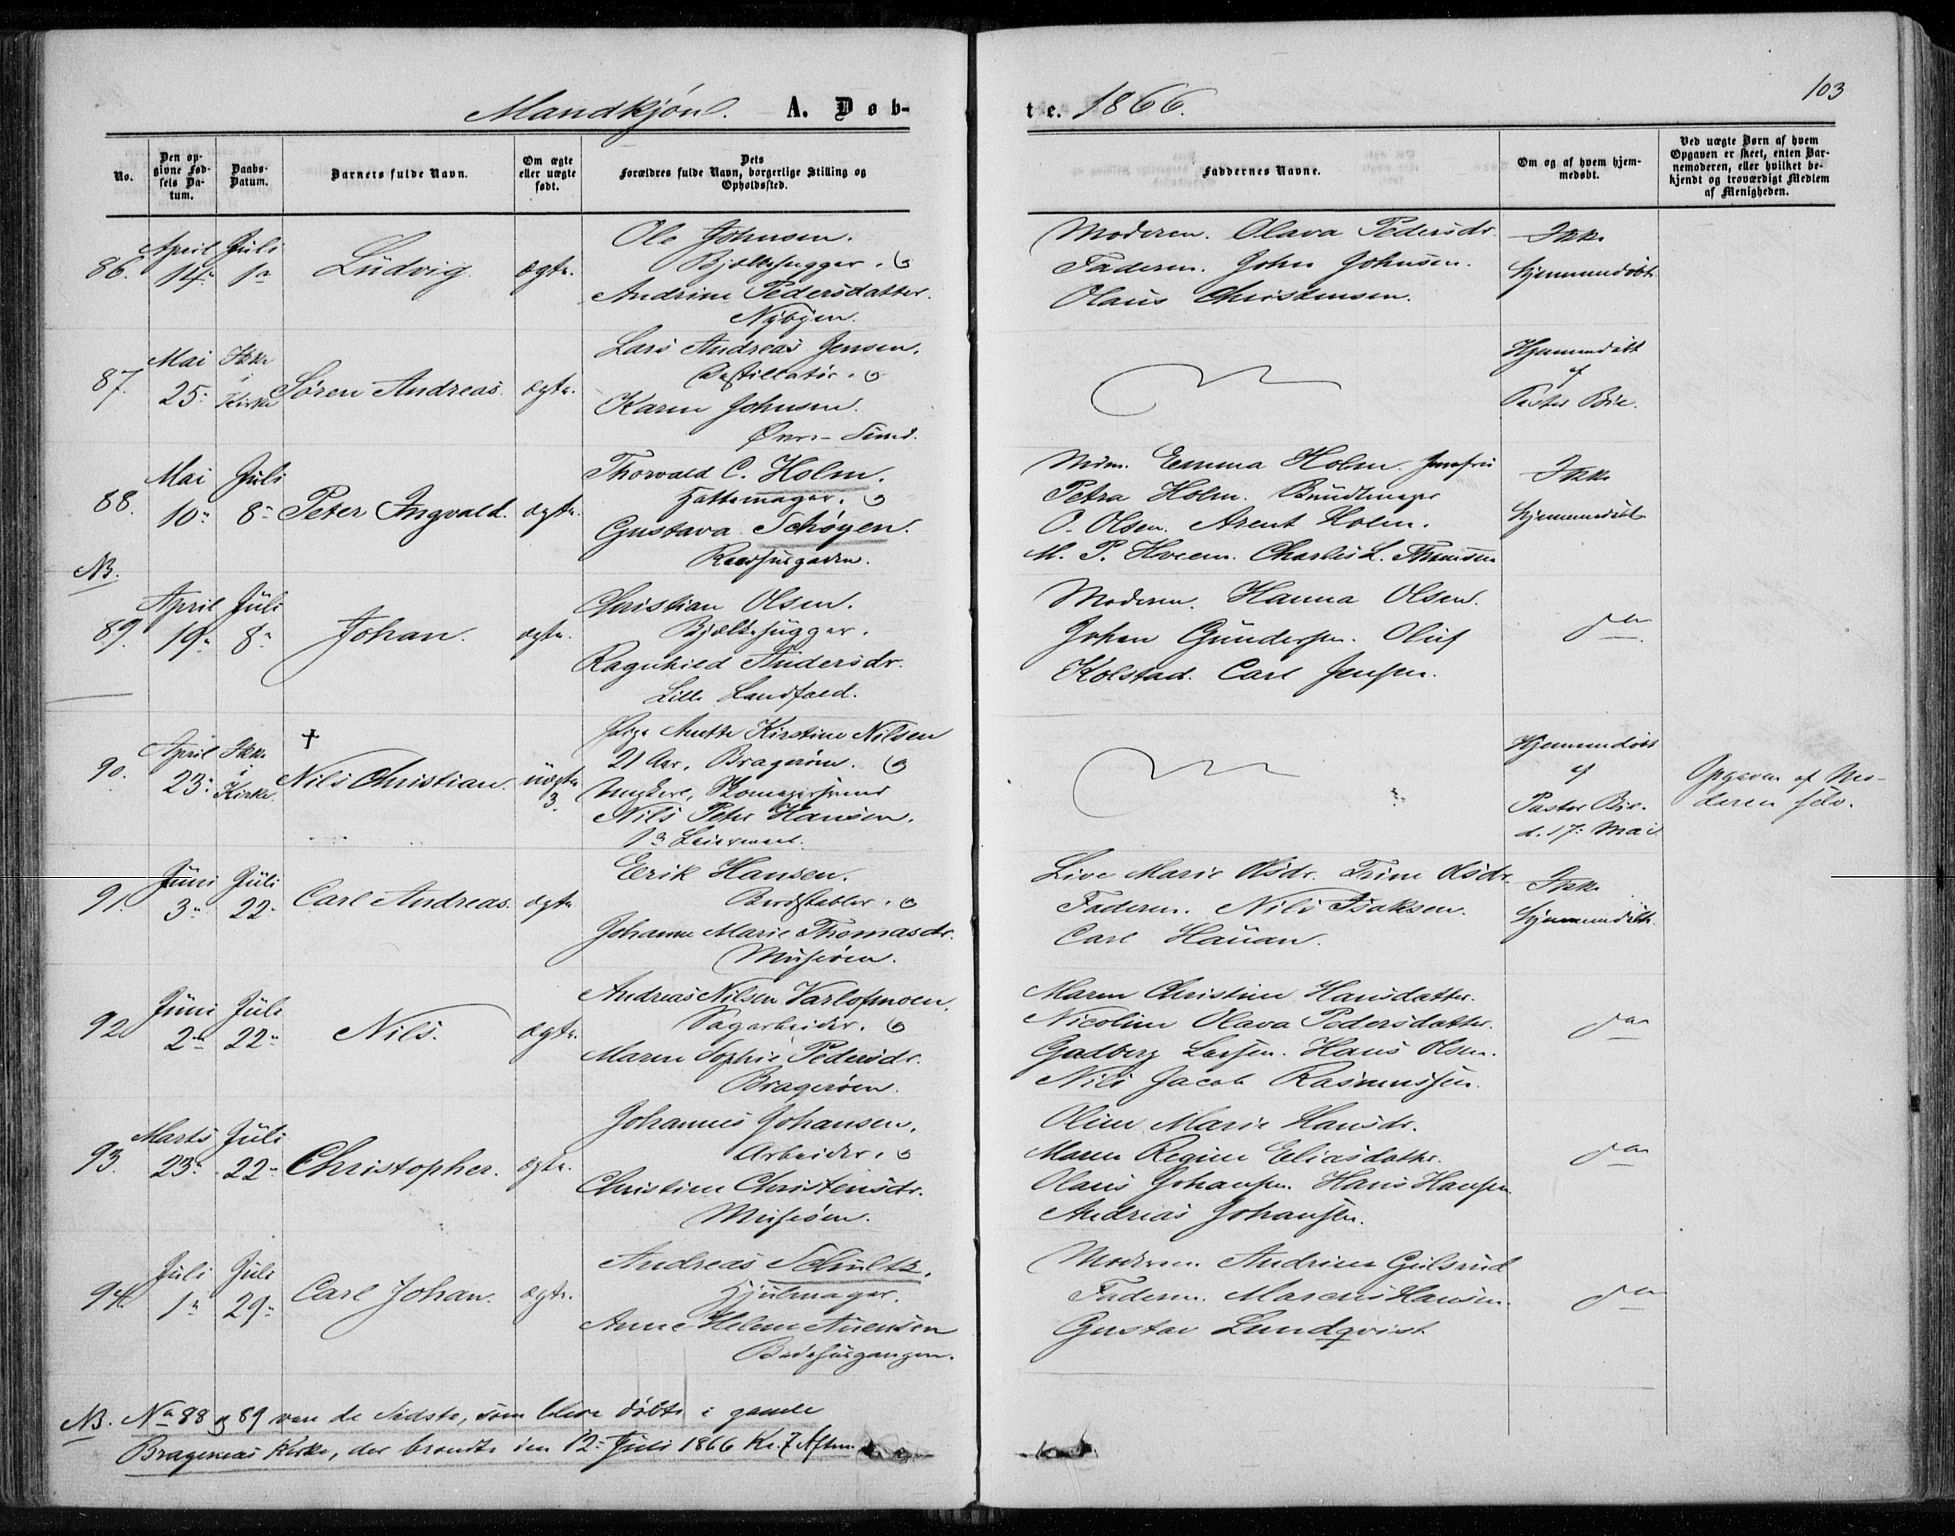 103
Mandkjøn. A. Døb-
te. 1866.
No.
Den op-
givne Fød-
sels Da-
tum.
Daabs-
Datum.
Barnets fulde Navn.
Om ægte
eller uægte
født.
Dets
Forældres fulde Navn, borgerlige Stilling og
Opholdssted.
Faddernes Navne.
Om og af hvem hjem-
medøbt.
Ved uægte Børn af hvem
Opgaven er skeet, enten Bar-
nemoderen, eller hvilket be-
kjendt og troværdigt Medlem
af Menigheden.
86. April 14 Juli 1 Ludvig ægte.
Ole Johnsen.
Bjælkehugger. og
Andrine Pedersdatter.
Nybyen.
Moderen. Olava Pedersdr.
Faderen. John Johnsen.
Olaus Christensen.
Ikke
hjemmedøbt
87. Mai 25 Ikke i Kirke Søren Andreas. ægte.
Lars Andreas Jensen.
Destillatør. og
Karen Johnsen.
Øvre-Sund.
Hjemmedøbt
af
Pastor Bie.
88. Mai 10 Juli 8 Peter Ingvald. ægte.
Thorvald C. Holm.
Hattemager. og
Gustava Schøyen.
Raadhusgaden.
Mdm. Emma Holm. Jomfru
Petra Holm. Bundtmager
O. Olsen. Arent Holm.
M. P. Hveem. Charles L.
Ikke
hjemmedøbt
NB.
89. April 19 Juli 8 Johan. ægte.
Christian Olsen.
Bjælkehugger.
Ragnhild Andersdr.
Lille Landfald.
Moderen. Hanna Olsen.
Johan Gundersen. Oluf
Kolstad. Carl Jensen.
do
90. April 23 Ikke i Kirke † Nils Christian. uægte 3.
Pige Anette Kirstine Nilsen
21 Aar, Bragerøen. og
Ungkarl, Skomagersvend
Nils Peter Hansen.
1ste Leiermaal.
Hjemmedøbt
af
Pastor Bie.
d. 17. Mai
Opgaven af Mo-
deren selv.
91. Juni 3 Juli 22 Carl Andreas. ægte
Erik Hansen.
Bordstabler. og
Johanne Marie Thomasdr.
Musøen.
Live Marie Olsdr. Trine Olsdr.
Faderen. Nils Isaksen.
Carl Hauan.
Ikke
hjemmedøbt.
92. Juni 2 Juli 22 Nils. ægte.
Andreas Nilsen Varlosmoen.
Sagarbeider. og
Maren Sophie Pedersdr.
Bragerøen.
Maren Christine Hansdatter.
Nicoline Olava Pedersdatter.
Gudberg Larsen. Hans Olsen.
Nils Jacob Rasmussen.
do
93. Marts 23 Juli 22 Christopher. ægte.
Johannes Johansen.
Arbeider. og
Christine Christensdr.
Musøen.
Oline Marie Hansdr.
Maren Regine Eliasdatter.
Olaus Johansen. Hans Hansen
Andreas Johansen.
do
94. Juli 1 Juli 29 Carl Johan. ægte.
Andreas Schultz.
Hjulmager.
Anne Helene Svensen
Badehusgangen.
Moderen. Andrine Gulsrud
Faderen. Marcus Hansen.
Gustav Lundqvist
do
NB. No 88 og 89 vare de Sidste, som bleve døbte i gamle
Bragernæs Kirke, der brændte den 12 Juli 1866 Kl. 7 Aften.